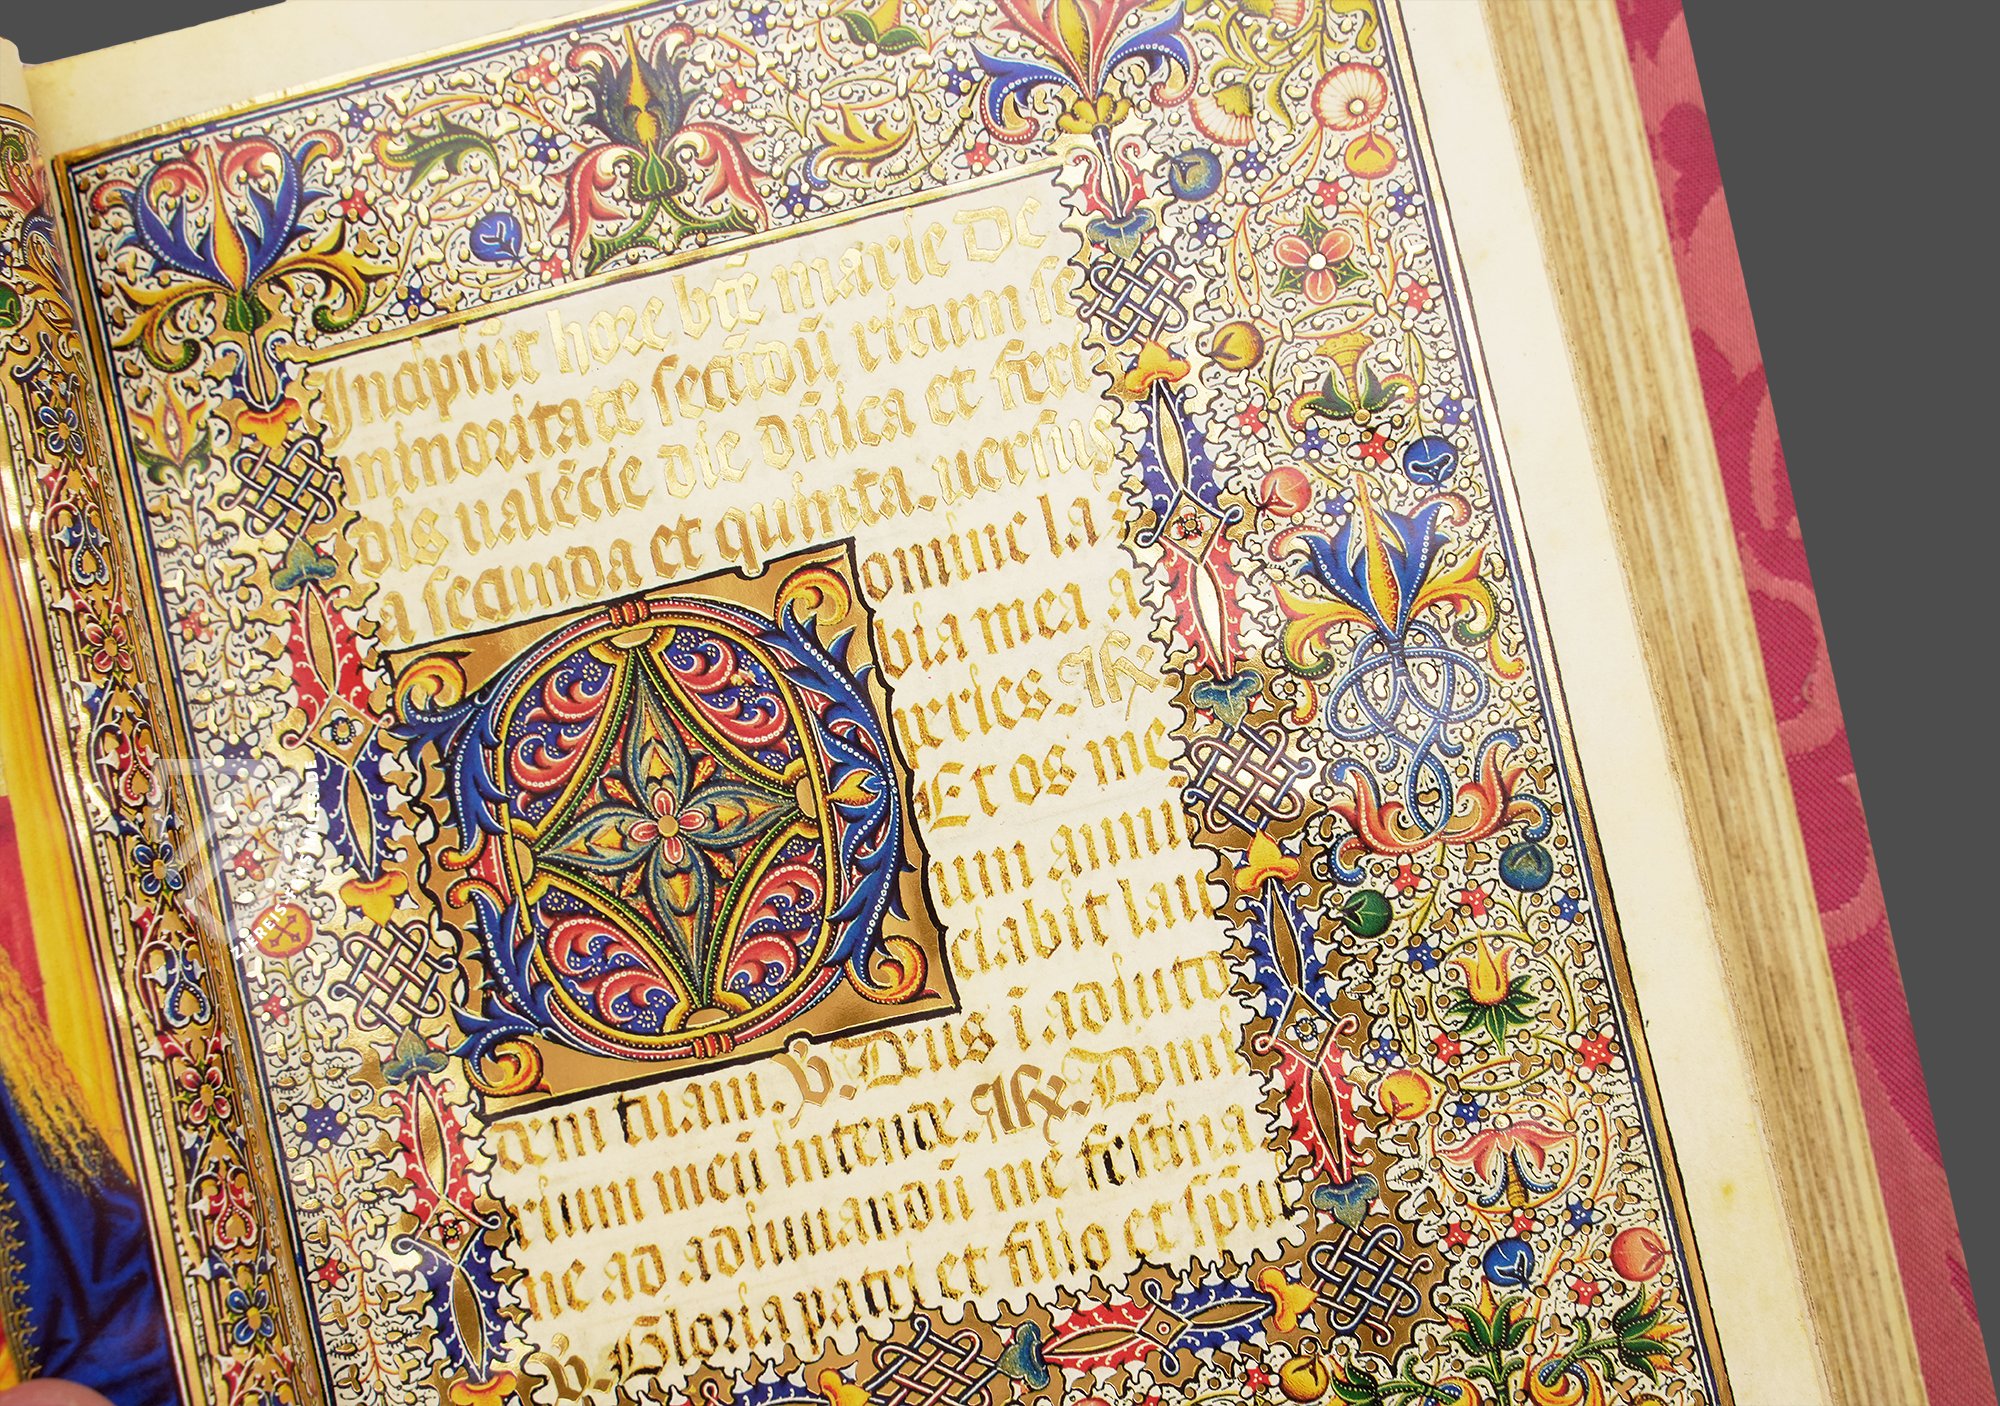 Incipiūt hore bt̄e marie de
ininoritate secūdū ritum se
dis ualēcie die dn̄ica et feri
a secunda et quinta. uersus
Domine la
bia mea a
peries. R̃.
Et os me
um annū
ciabit lau
dem tuam. V̄. Deus ī adiuto
rium meū intende. R̃. Domi
ne ad adiuuandū me festina.
V̄. Gloria patri et filio et sp̄ui
ZIEREIS FAKSIMILES.DE